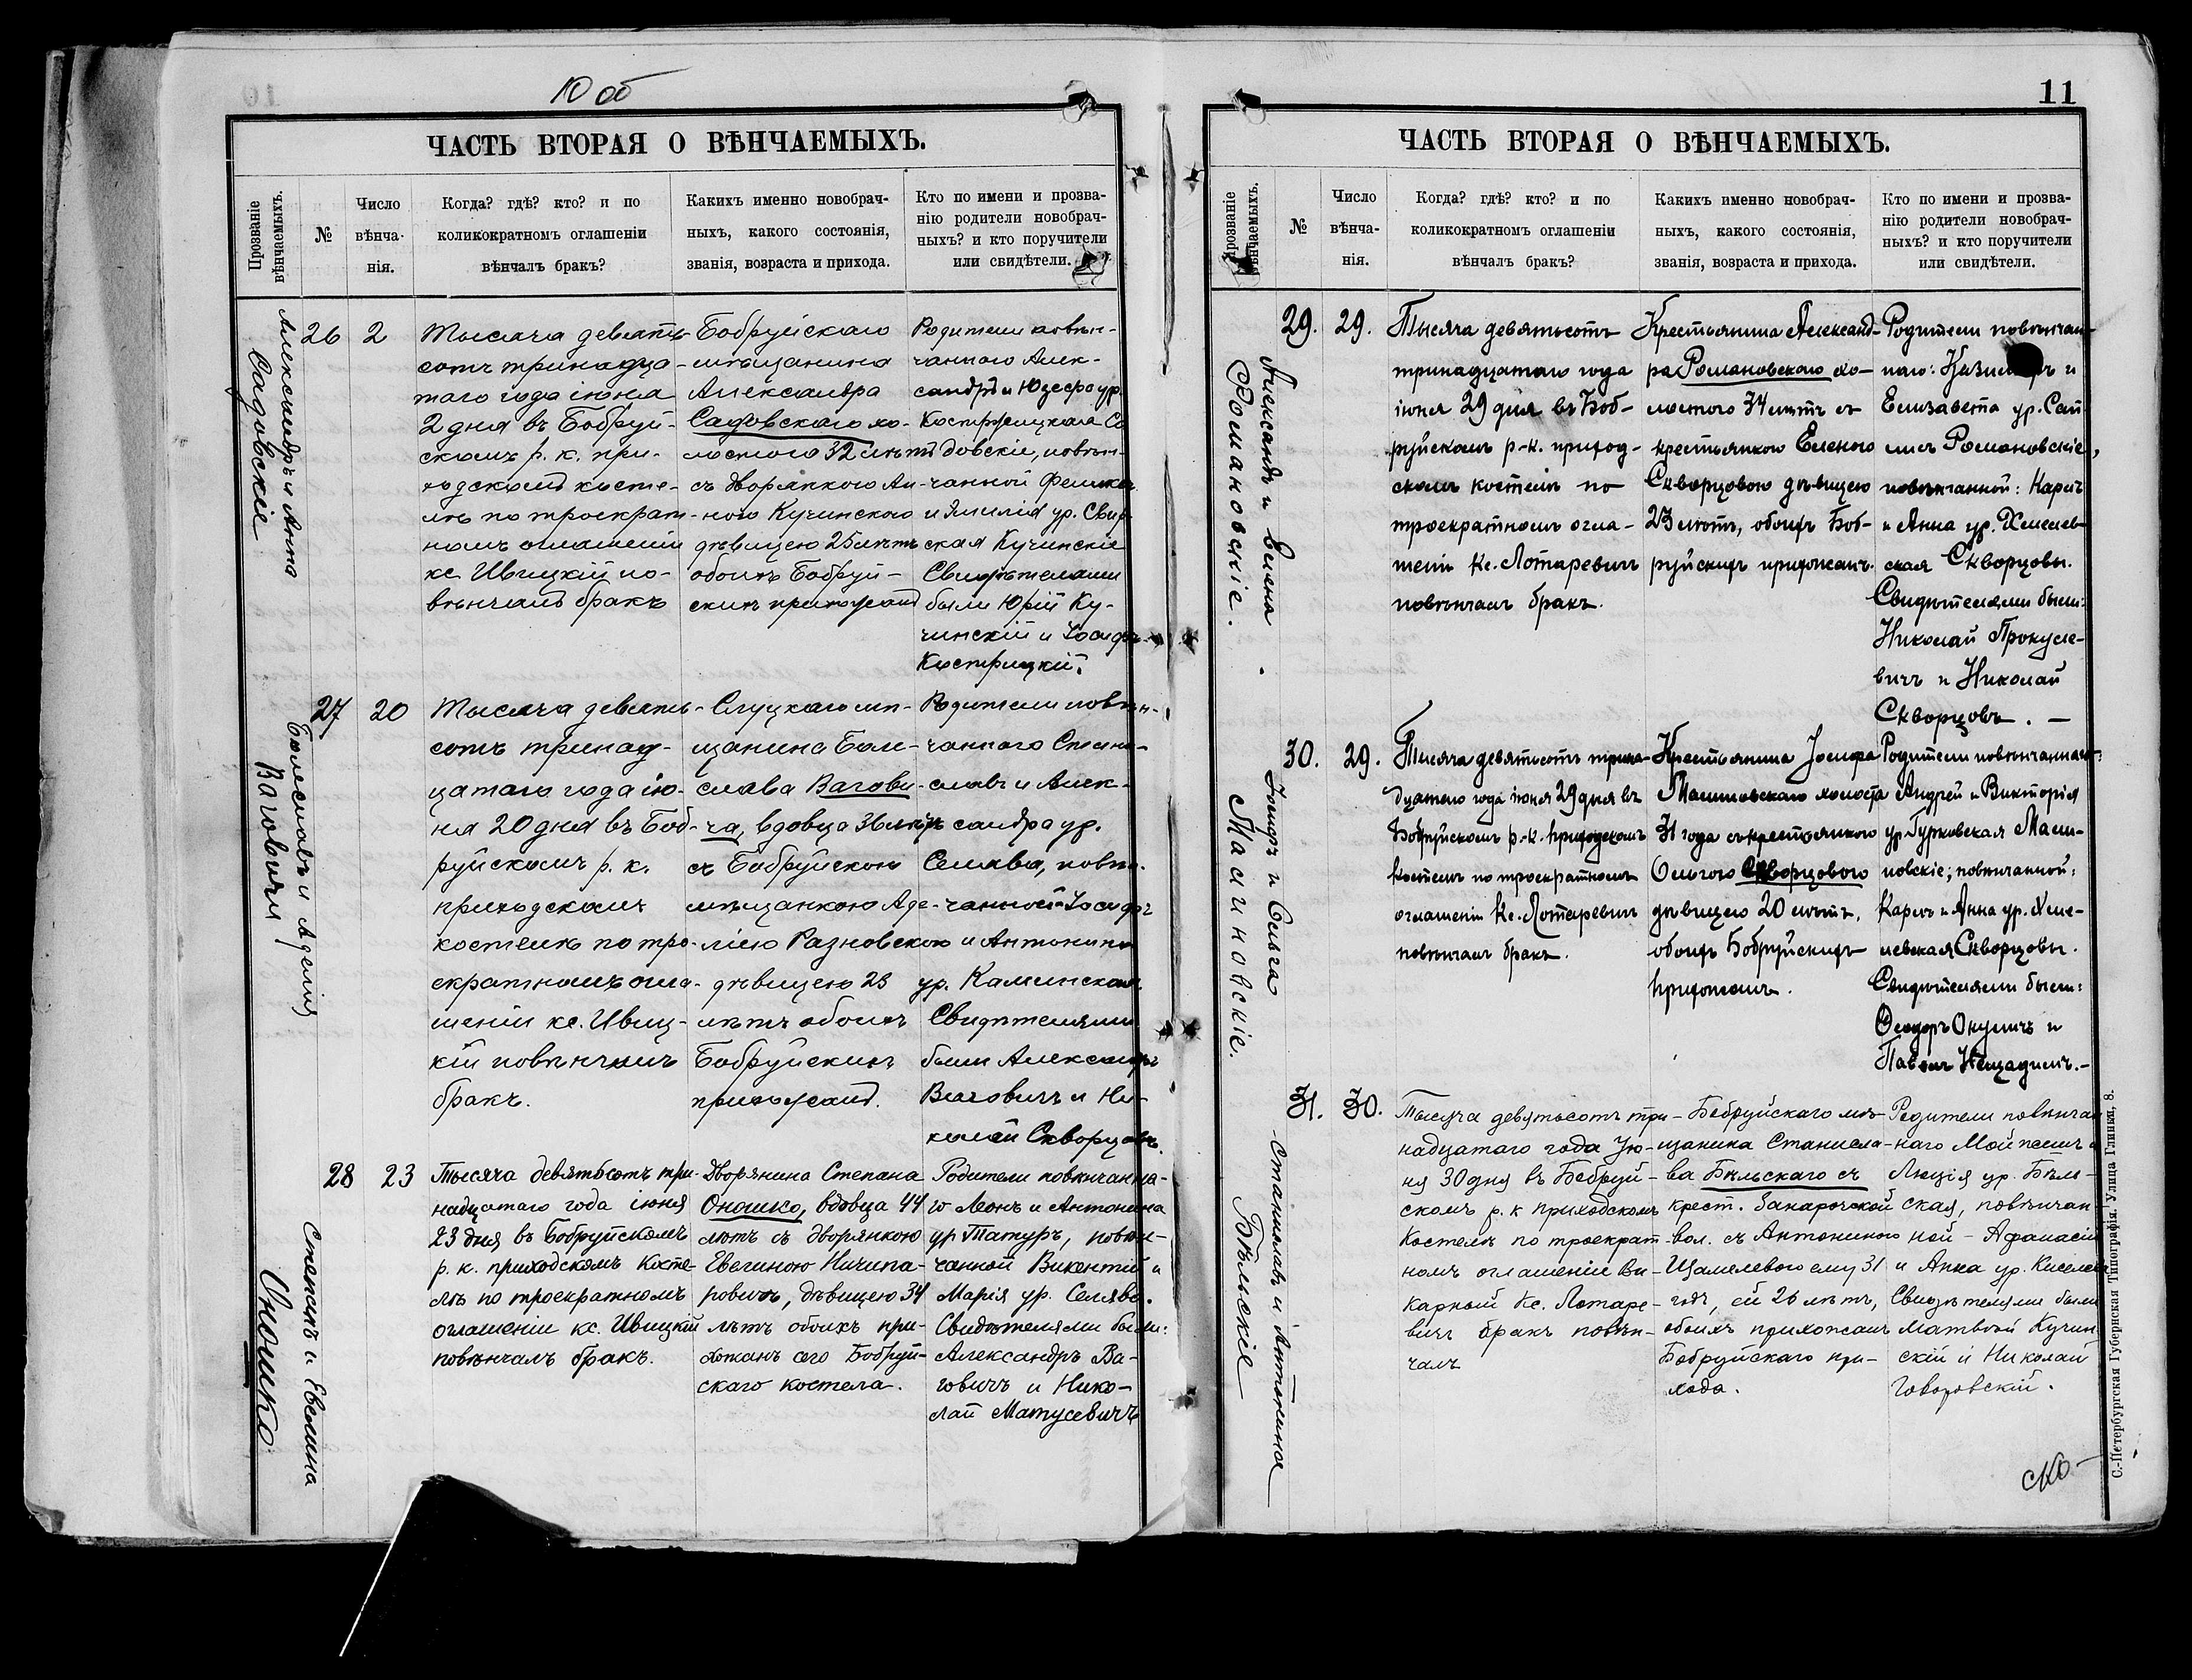 10 об
ЧАСТЬ ВТОРАЯ О ВѢНЧАЕМЫХЪ.
Прозваніе
вѣнчаемыхъ.
№
Число
вѣнча-
нія.
Когда? гдѣ? кто? и по
коликократномъ оглашеніи
вѣнчалъ бракъ?
Какихъ именно новобрач-
ныхъ, какого состоянія,
званія, возраста и прихода.
Кто по имени и прозва-
нію родители новобрач-
ныхъ? и кто поручители
или свидѣтели.
Александръ и Анна
Садовскіе
26
2
Тысяча девять-
сотъ тринадца-
таго года іюня
2 дня въ Бобруй-
скомъ р. к. при-
ходскомъ косте-
лѣ по троекрат-
номъ оглашеніи
кс. Ивицкій по-
вѣнчалъ бракъ
Бобруйскаго
мѣщанина
Александра
Садовскаго хо-
лостого 32 лѣтъ
съ дворянкою Ан-
ною Кучинскою
дѣвицею 25 лѣтъ
обоихъ Бобруй-
скихъ прихожанъ
Родители повѣн-
чаннаго Алек-
сандръ и Юзефа ур.
Кострицкая Са
довскіе, повѣн-
чанной Феликсъ
и Эмилія ур. Свир-
ская Кучинскіе
Свидѣтелями
были Юрій Ку-
чинскій и Іосифъ
Кострицкій.
Болеславъ и Аделія
Ваговичи
27
20
Тысяча девять-
сотъ тринад-
цатаго года ію-
ня 20 дня въ Боб-
руйскомъ р. к.
приходскомъ
костелѣ по тро-
екратномъ огла-
шеніи кс. Ивиц-
кій повѣнчалъ
бракъ.
Слуцкаго мѣ-
щанина Боле-
слава Вагови-
ча, вдовца 36 лѣтъ
съ Бобруйскою
мѣщанкою Аде-
ліею Разновскою
дѣвицею 23
лѣтъ обоихъ
Бобруйскихъ
прихожанъ.
Родители повѣн-
чаннаго Стани-
славъ и Алек-
сандра ур.
Селява, повѣн-
чанной Іосифъ
и Антонина
ур. Каминская.
Свидѣтелями
были Александръ
Ваговичъ и Ни-
колай Скворцовъ.
Степанъ и Евелина
Оношко
28
23
Тысяча девятьсотъ три-
надцатаго года іюня
23 дня въ Бобруйскомъ
р. к. приходскомъ косте-
лѣ по троекратномъ
оглашеніи кс. Ивицкій
повѣнчалъ бракъ.
Дворянина Степана
Оношко, вдовца 44
лѣтъ съ дворянкою
Евелиною Ничипа-
ровичъ, дѣвицею 34
лѣтъ обоихъ при-
хожанъ сего Бобруй-
скаго костела.
Родители повѣнчанна-
го Леонъ и Антонина
ур Татуръ, повѣн-
чанной Викентій и
Марія ур. Селява.
Свидѣтелями были:
Александръ Ва-
говичъ и Нико-
лай Матусевичъ
11
ЧАСТЬ ВТОРАЯ О ВѢНЧАЕМЫХЪ.
Прозваніе
вѣнчаемыхъ.
№
Число
вѣнча-
нія.
Когда? гдѣ? кто? и по
коликократномъ оглашеніи
вѣнчалъ бракъ?
Какихъ именно новобрач-
ныхъ, какого состоянія,
званія, возраста и прихода.
Кто по имени и прозва-
нію родители новобрач-
ныхъ? и кто поручители
или свидѣтели.
Александръ и Елена
Романовскіе.
29.
29.
Тысяча девятьсотъ
тринадцатаго года
іюня 29 дня въ Боб-
руйскомъ р.-к. приход-
скомъ костелѣ по
троекратномъ огла-
шеніи Кс. Лотаревичъ
повѣнчалъ бракъ.
Крестьянина Александ-
ра Романовскаго хо-
лостого 34 лѣтъ съ
крестьянкою Еленою
Скворцовою дѣвицею
23 лѣтъ, обоихъ Боб-
руйскихъ прихожанъ.
Родители повѣнчан-
наго: Казимиръ и
Елизавета ур.
Романовскіе,
повѣнчанной: Карлъ
и Анна ур. Хмелев-
ская Скворцовы.
Свидѣтелями были:
Николай Прокуле-
вичъ и Николай
Скворцовъ. —
Іосифъ и Ольга
Малиновскіе.
30.
29.
Тысяча девятьсотъ трина-
дцатаго года іюня 29 дня въ
Бобруйскомъ р.-к. приходскомъ
костелѣ по троекратномъ
оглашеніи Кс. Лотаревичъ
повѣнчалъ бракъ.
Крестьянина Іосифа
Малиновскаго холоста
31 года съ крестьянкою
Ольгою Скворцовою
дѣвицею 20 лѣтъ,
обоихъ Бобруйскихъ
прихожанъ.
Родители повѣнчаннаго:
Андрей и Викторія
ур. Гурковская Мали-
новскіе; повѣнчанной:
Карлъ и Анна ур. Хме-
левская Скворцовы.
Свидѣтелями были:
Ѳеодоръ Окуличъ и
Павелъ
Станиславъ и Антонина
Бѣльскіе
31.
30.
Тысяча девятьсотъ три-
надцатаго года Ію-
ня 30 дня въ Бобруй-
скомъ р. к приходскомъ
Костелѣ по троекрат-
номъ оглашеніи Ви-
карный Кс. Лотаре-
вичъ бракъ повѣн-
чалъ
Бобруйскаго мѣ-
щанина Станисла-
ва Бѣльскаго съ
крест.
вол. съ Антониною
ему 31
годъ, ей 26 лѣтъ,
обоихъ прихожанъ
Бобруйскаго при-
хода.
Родители повѣнчан
наго и
Люція ур. Бѣль-
ская, повѣнчан
ной - Афанасій
и Анна ур. Киселева
Свидѣтелями были
Матвѣй Кучин
скій и Николай
Говоровскій.
С.-Петербургская Губернская Типографія. Улица Глинки, 8.